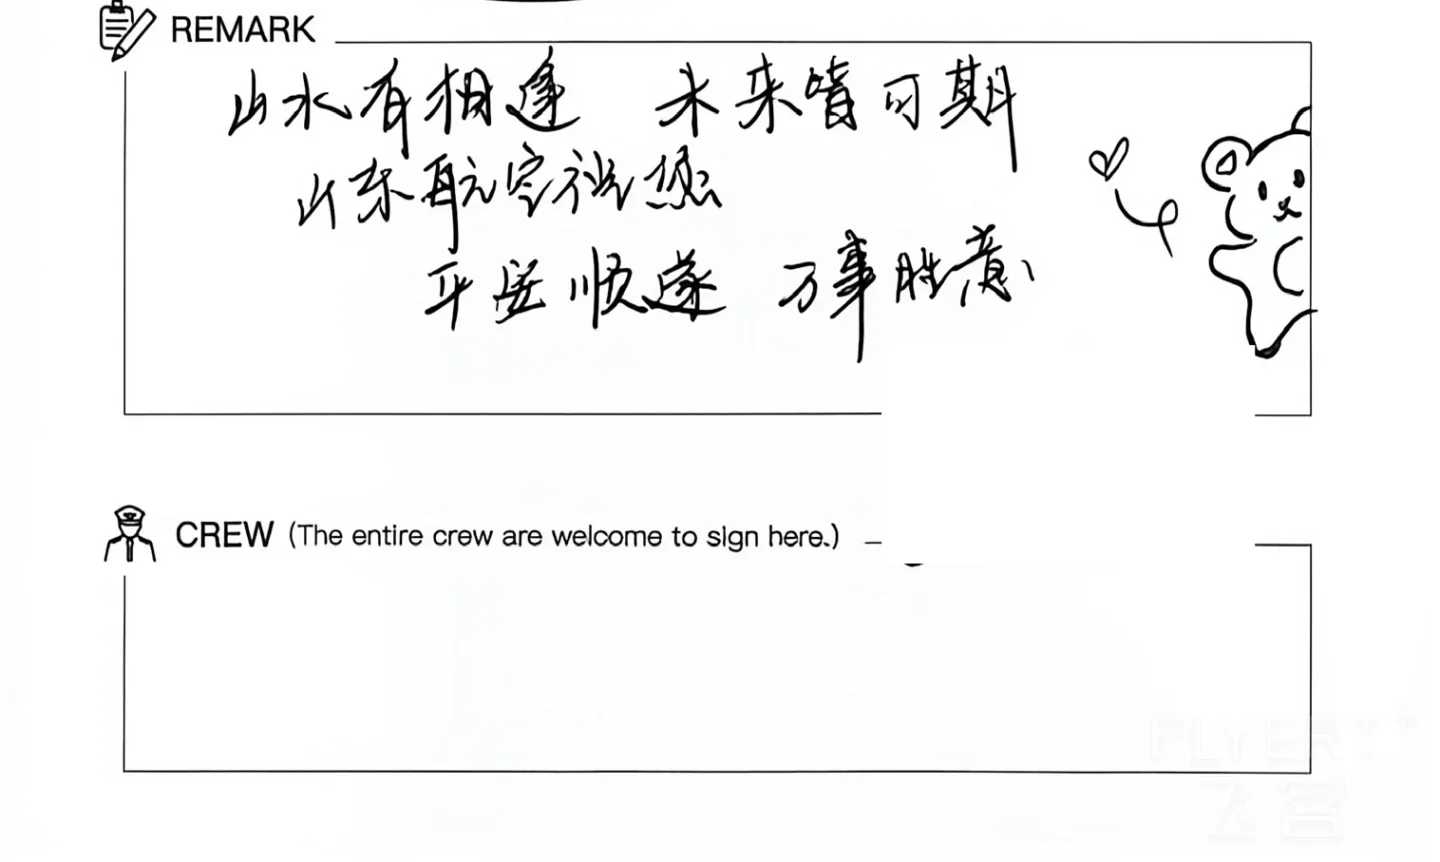 REMARK
山水有相逢 未来皆可期
山东航空祝您
平安顺遂 万事胜意
CREW (The entire crew are welcome to sign here.)
FLYERT
飞客